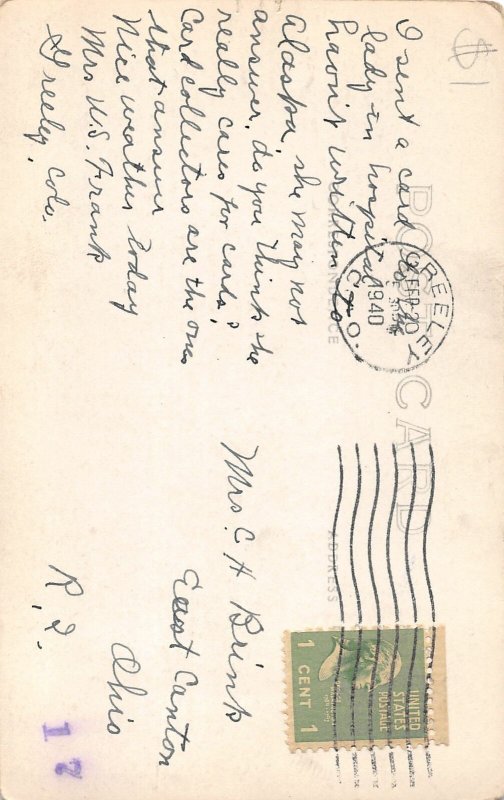 $1
POST CARD
CORRESPONDENCE
ADDRESS
GREELEY
FEB 20
1940
COLO.
UNITED
STATES
POSTAGE
1 CENT 1
I sent a card to the
lady in hospital
havn't written to
Alaska, she may not
answer, do you think she
really cares for cards?
Card collectors are the ones
that answer
Nice weather today
Mrs U.S. Frank
Greeley, Colo.
Mrs. C H Brink
East Canton
Ohio
R, 2.
1 7